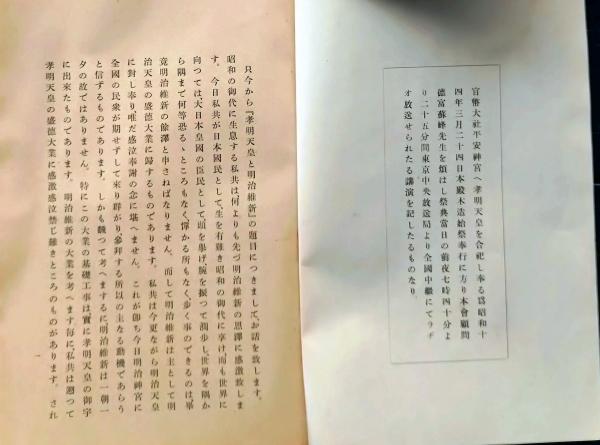 官幣大社平安神宮へ孝明天皇を合祀し奉る爲昭和十
四年三月二十四日本殿木造始祭奉行に方り本會顧問
德富蘇峰先生を煩はし祭典當日の前夜七時四十分よ
り二十五分間東京中央放送局より全國中繼にてラヂ
オ放送せられたる講演を記したるものなり
只今から『孝明天皇と明治維新』の題目につきまして、お話を致します。
昭和の御代に生息する私共は何よりも先づ明治維新の恩澤に感激致しま
す。今日私共が日本國民として、生を有難き昭和の御代に享け、而も世界に
向つては大日本皇國の臣民として頭を擧げ、腕を振つて濶步し、世界を隅か
ら隅まで何等恐るゝところもなく、憚かる所もなく、步く事のできるのは、畢
竟明治維新の餘澤と申さねばなりません。而して明治維新は主として明
治天皇の盛德大業に歸するものであります。私共は今更ながら明治天皇
に對し奉り、唯だ感泣奉謝の念に堪へません。これが卽ち今日明治神宮に
全國の民衆が期せずして來り群がり、參拜する所以の主なる動機であらう
と信ずるものであります。しかも飜つて考へまするに、明治維新は一朝一
夕の故ではありません。特にこの大業の基礎工事は、實に孝明天皇の御宇
に出來たものであります。明治維新の大業を考へます每に、私共は遡つて
孝明天皇の盛德大業に感激感泣禁じ難きところのものがあります。され